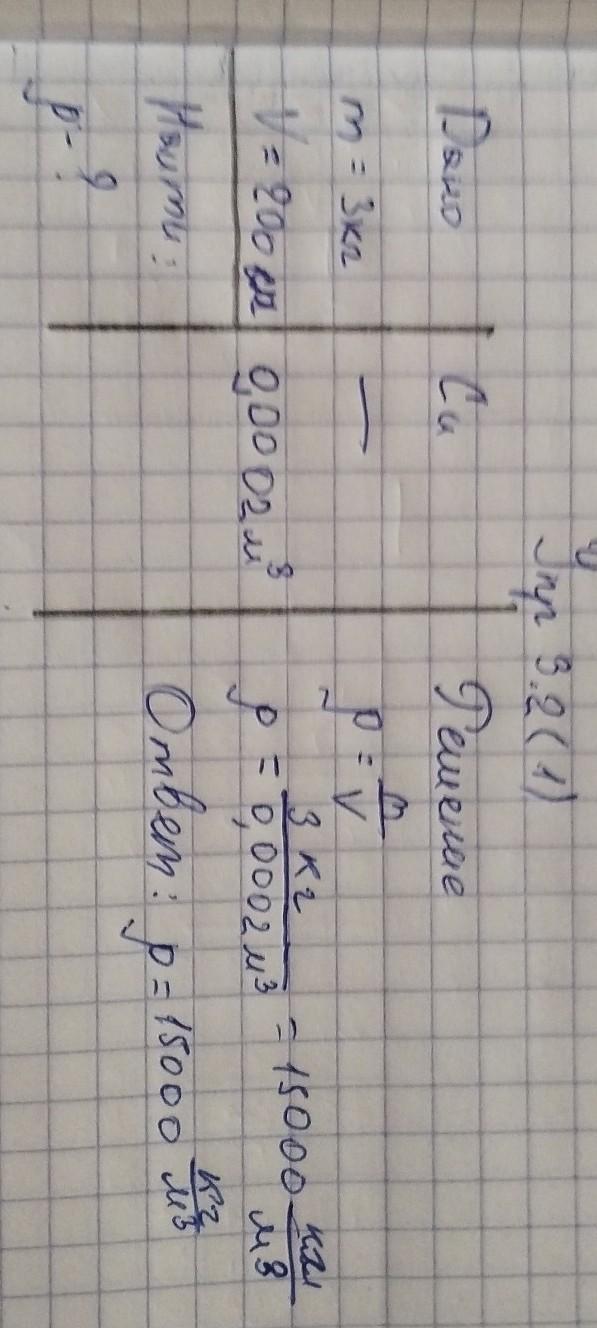 Упр 3.2(1)
Дано
m = 3кг
V = 200
Найти:
ρ - ?
Си
—
0,0002 м³
Решение
ρ = m/V
ρ = 3 кг/0,0002 м³ = 15000 кг/м³
Ответ: ρ = 15000 кг/м³